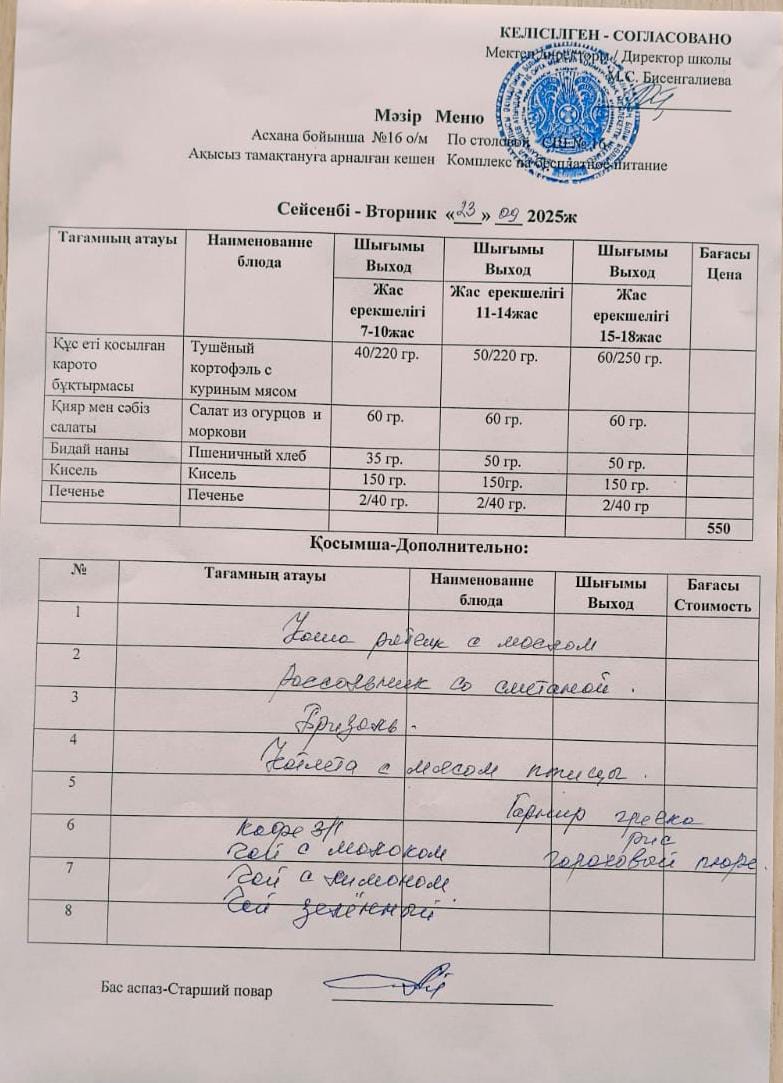 КЕЛІСІЛГЕН - СОГЛАСОВАНО
Мектеп директоры / Директор школы
М.С. Бисенгалиева
Мәзір Меню
Асхана бойынша №16 о/м По столовой СШ № 16
Ақысыз тамақтануға арналған кешен Комплекс на бесплатное питание
Сейсенбі - Вторник «23» 09 2025ж
Тағамның атауы Наименованне блюда Шығымы Выход Шығымы Выход Шығымы Выход Бағасы Цена
Жас ерекшелігі 7-10жас Жас ерекшелігі 11-14жас Жас ерекшелігі 15-18жас
Құс еті қосылған карото бұқтырмасы Тушёный кортофэль с куриным мясом 40/220 гр. 50/220 гр. 60/250 гр.
Қияр мен сәбіз салаты Салат из огурцов и моркови 60 гр. 60 гр. 60 гр.
Бидай наны Пшеничный хлеб 35 гр. 50 гр. 50 гр.
Кисель Кисель 150 гр. 150гр. 150 гр.
Печенье Печенье 2/40 гр. 2/40 гр. 2/40 гр
550
Қосымша-Дополнительно:
№ Тағамның атауы Наименованне блюда Шығымы Выход Бағасы Стоимость
1 Каша с маслом
2 Рассольник со сметаной.
3 Бризоль.
4 Котлета с мясом птицы.
5 Гарнир гречка
6 кофе 3/1 рис
чай с молоком гороховый пюре.
7 Чай с лимоном
8 Чай зелённый
Бас аспаз-Старший повар